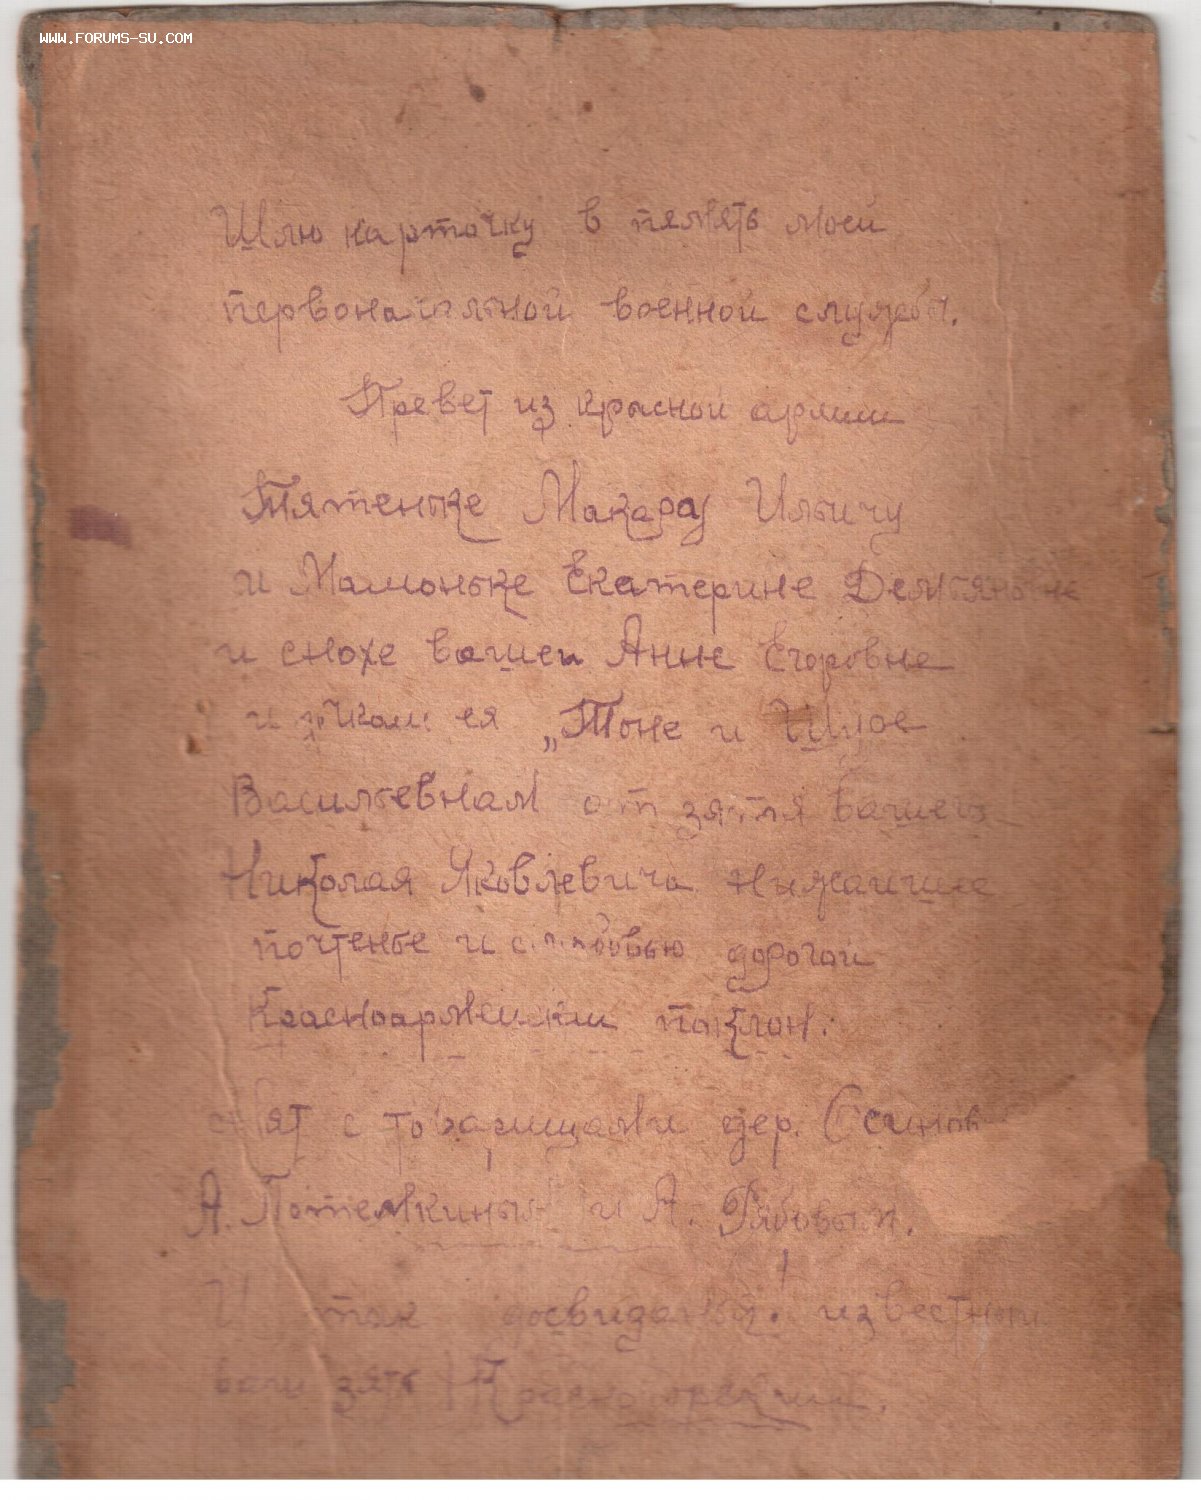 WWW.FORUMS-SU.COM
Шлю карточку в память моей
первоначальной военной службы.
Превет из красной армии
Тятеньке Макару Ильичу
и Мамоньке Екатерине Демьяновне
и снохе вашей Анне Егоровне
и ея „Тоне и
Васильевнам от зятя вашего
Николая Яковлевича ныжайшие
почтенье и с любовью дорогой
Красноармейкий поклон.
снят с товарищами дер. Осинов
А. Потемкиным и А. Рябовым.
И так досвиданья! известный
ваш зять